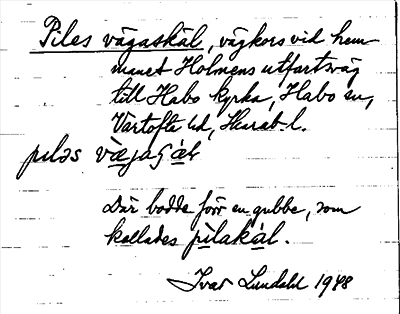 Piles vägaskäl, vägkors vid hem-
manet Holmens utfartsväg
till Habo kyrka, Habo sn,
Vartofta hd, Skarab. l.
piləs vägaʃäl
Där bodde förr en gubbe, som
kallades pilakal.
Ivar Lundahl 1948